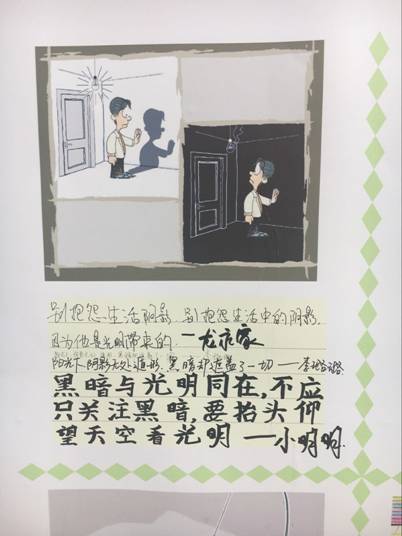 别抱怨生活阴影 别抱怨生活中的阴影,
因为他是光明带来的 一龙永家
阳光下,阴影无处遁形,黑暗却遮盖了一切 —李
黑暗与光明同在,不应
只关注黑暗,要抬头仰
望天空看光明 —小明明.